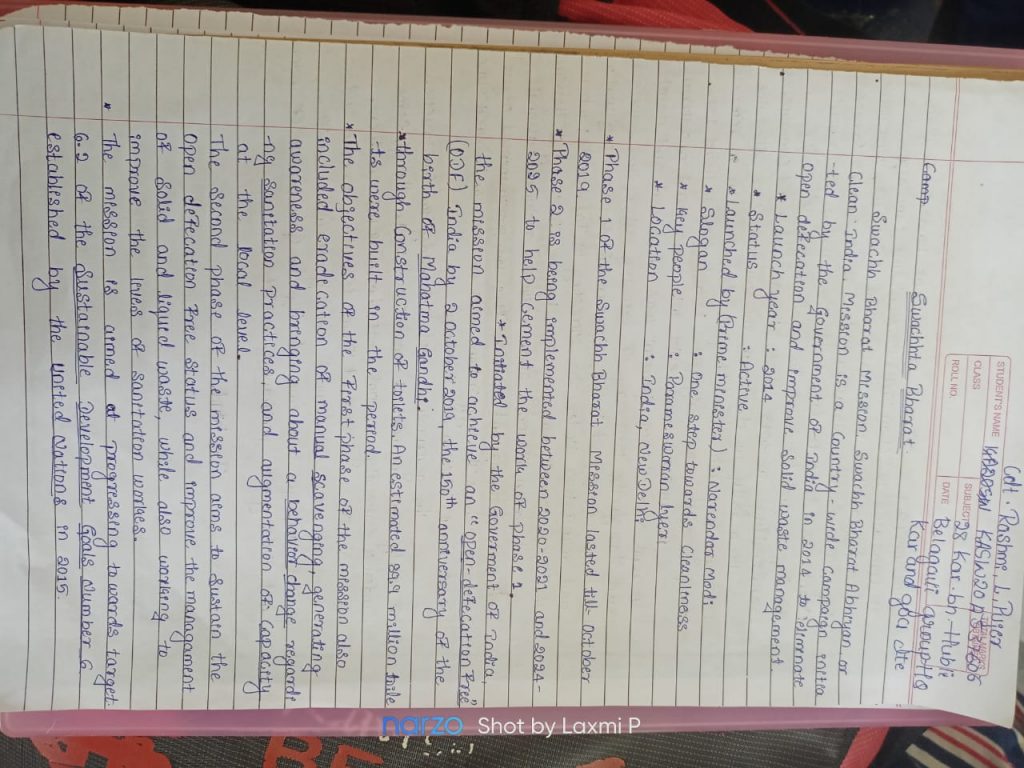 STUDENT'S NAME Cdt. Rashme. L. Pujer
CLASS
SUBJECT 28 Kar. bn-Hubli
ROLL NO.
DATE Belagavi GroupHQ
Karandga dte
Camp Swachhta Bharat.
Swachh Bharat Mission, Swachh Bharat Abhiyan or
Clean India Mission is a Country-wide Campaign initia
-ted by the Government of India in 2014 to eliminate
open defecation and improve Solid waste management.
* Launch year : 2014
* Status : Active
* Launched by (Prime minister) : Narendar Modi
* Slogan : one step towards Cleanliness
* key people : Parameswaran lyer
* Location : India, New Delhi
* Phase 1 of the Swachh Bharat Mession lasted till October
2019
* Phase 2 is being implemented between 2020-2021 and 2024-
2025 to help Cement the work of phase 1.
* Initiated by the Goverment of India,
the mission aimed to achieve an "open-defecation Free"
(ODF) India by 2 october 2019, the 150th anniverary of the
birth of Mahatma Gandhi.
* through Construction of toilets. An estimated 89.9 million toile
-ts were built in the period.
* The objectives of the First phase of the mission also
included eradication of manual Scavenging, generating
awareness and bringing about a behavior change regardi
-ng Sanitation practices, and augmentation of Capacity
at the local level.
The Second phase of the mission aims to Sustain the
open defecation Free Status and improve the managment
of Solid and liquid waste, while also working to
improve the lives of sanitation workes.
* The mission is aimed at progressing to words target
6.2 of the Sustainable Development Goals Number 6
established by the United Nations in 2015.
narzo Shot by Laxmi P